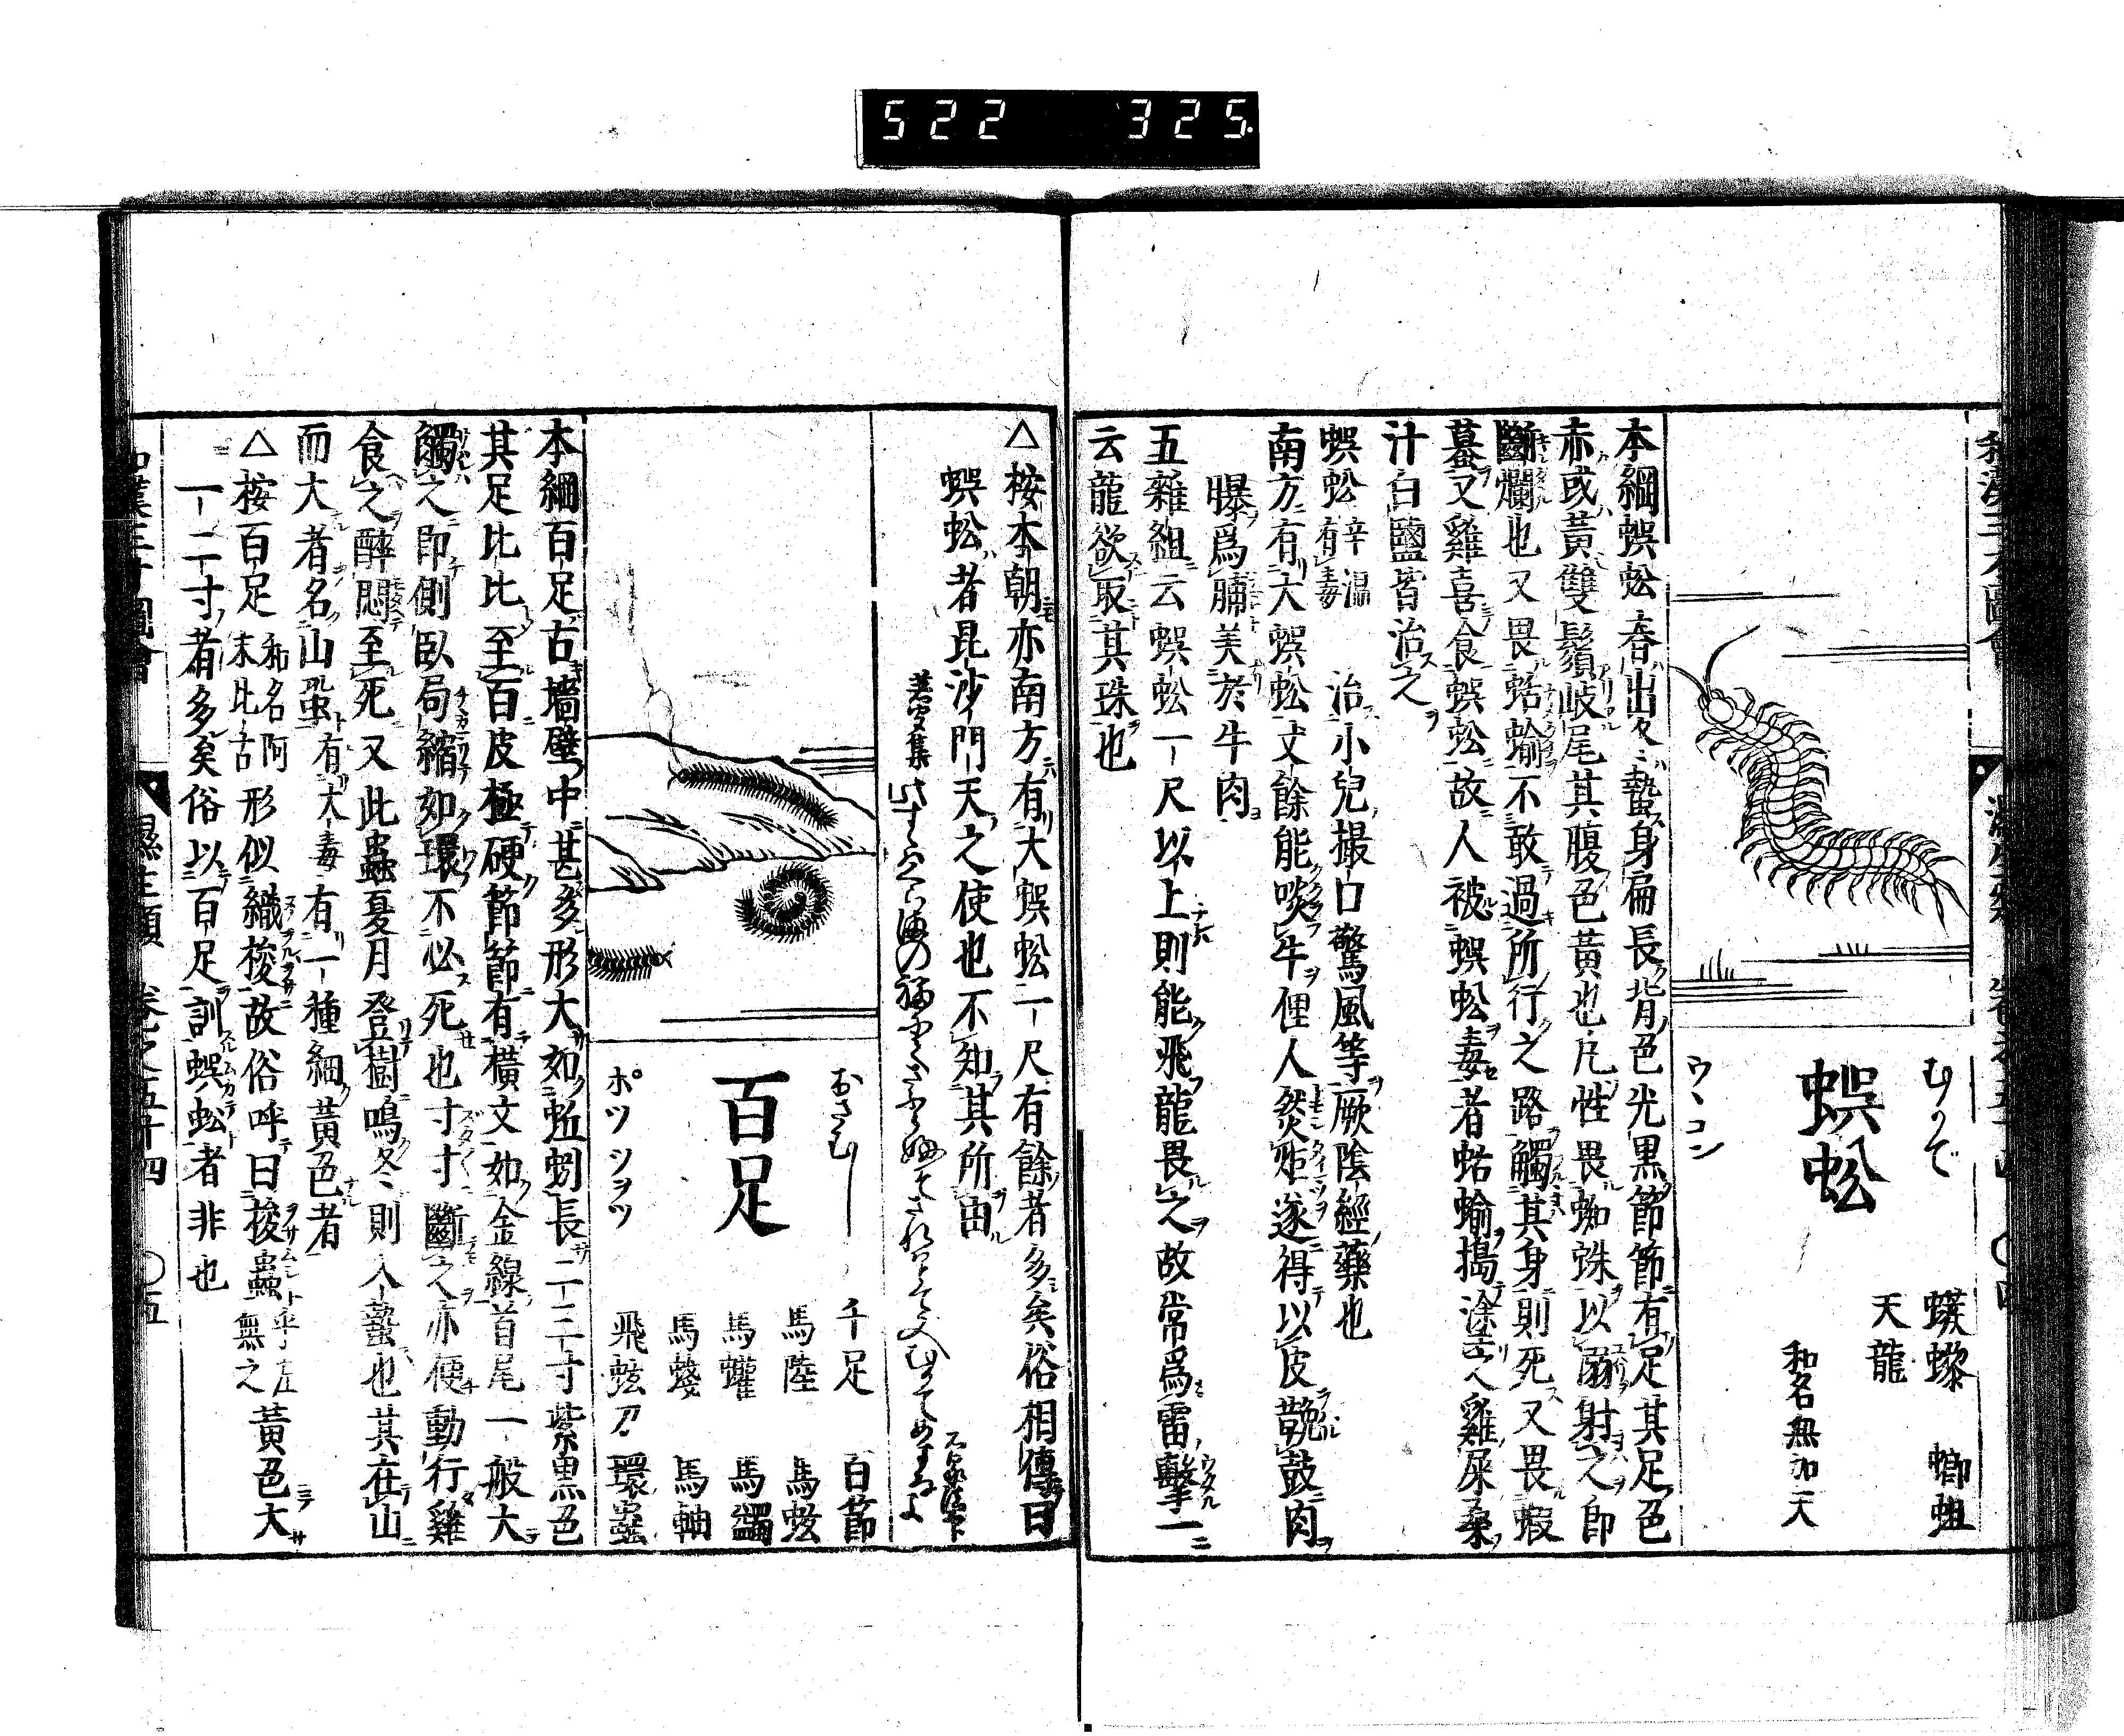 522 325
和漢三才圖會 濕生類 卷之五十四 ○四
むかで
蜈蚣
ウヽコン
蝍蛆
天龍
和名無加天
本綱蜈蚣春出冬蟄身扁長背色光黒節節有足其足色
赤或黃雙鬚岐尾其腹色黃也凡性畏蜘蛛以溺射之即
斷爛也又畏蛞蝓不敢過所行之路觸其身則死又畏蝦
蟇又雞喜食蜈蚣故人被蜈蚣毒者蛞蝓搗塗之雞屎桑
汁白鹽皆治之
蜈蚣 辛溫有毒 治小兒撮口驚風等厥陰經藥也
南方有大蜈蚣丈餘能啖牛俚人然炬遂得以皮鞔鼓肉
曝爲脯美於牛肉
五雜組云蜈蚣一尺以上則能飛龍畏之故常爲雷擊一
云龍欲取其珠也
△桉本朝亦南方有大蜈蚣一尺有餘者多矣俗相傳曰
蜈蚣者毘沙門天之使也不知其所由
百足
おさむし
ポツ ツヲツ
千足 百節
馬陸 馬蚿
馬蠸 馬蠲
馬蠽 馬軸
飛蚿虫 環蟲
本綱百足古墻壁中甚多形大如蚯蚓長二三寸紫黒色
其足比比至百皮極硬節節有橫文如金線首尾一般大
觸之即側臥局縮如環不必死也寸寸斷之亦便動行雞
食之醉悶至死又此蟲夏月登樹鳴冬則入蟄也其在山
而大者名山蛩有大毒有一種細黃色者
△桉百足 和名阿末比古 形似織梭故俗呼曰梭蟲 無之 黃色大
一二寸者多矣俗以百足訓蜈蚣者非也
和漢三才圖會 濕生類 卷之五十四 ○五